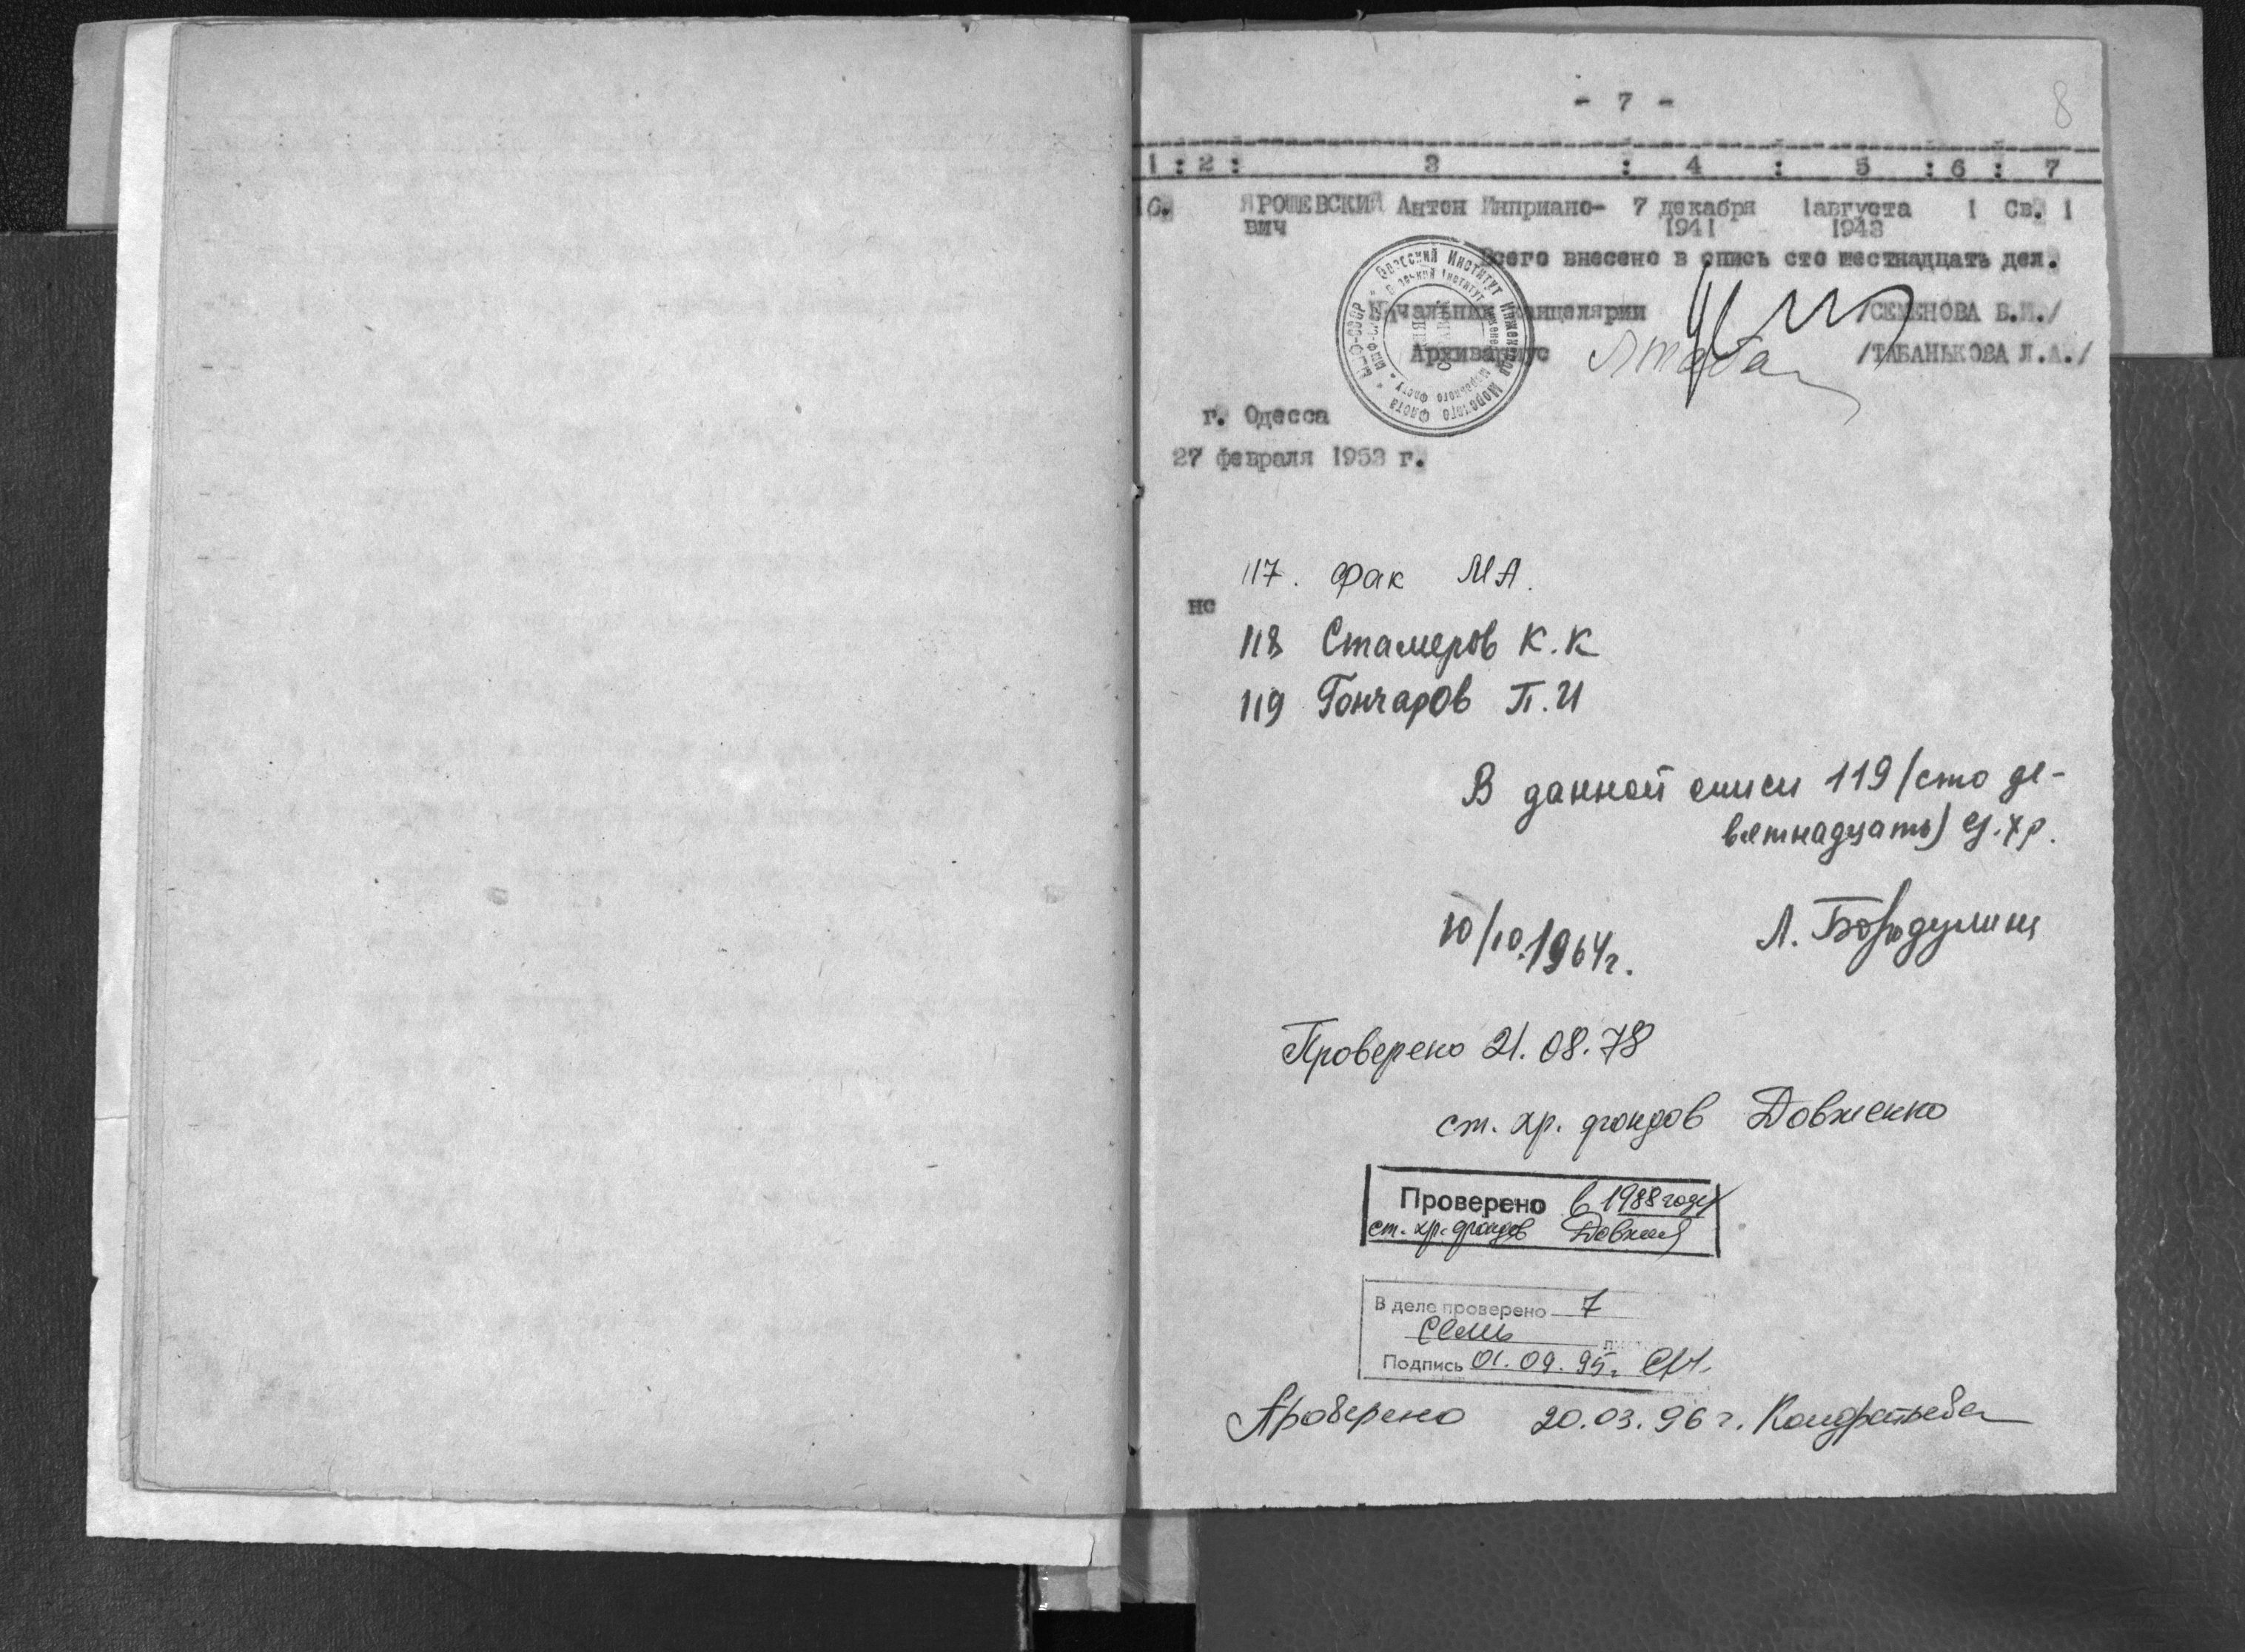 8
- 7 -
1 : 2 : 3 : 4 : 5 : 6 : 7
ЯРОШЕВСКИЙ Антон Киприано- 7 декабря 1августа 1 Св. 1
вич 1941 1943
Всего внесено в опись сто шестнадцать дел.
Начальник канцелярии /СЕМЕНОВА В.И./
Архивариус /ТАБАНЬКОВА Л.А./
Одесский Институт Инженеров Морского Флота * ММФ-СССР *
г. Одесса
27 февраля 1953 г.
117. Фак М А.
нс
118 Стамеров К.К
119 Гончаров П.И
В данной описи 119 /сто де-
вятнадцать) ед.хр.
10/10.1964г. Л. Бородулина
Проверено 21.08.78
ст. хр. фондов Довженко
Проверено в 1988 году
ст. хр. фондов
В деле проверено 7
семь
Подпись 01.09.95г.
Проверено 20.03.96 г. Кондратьева